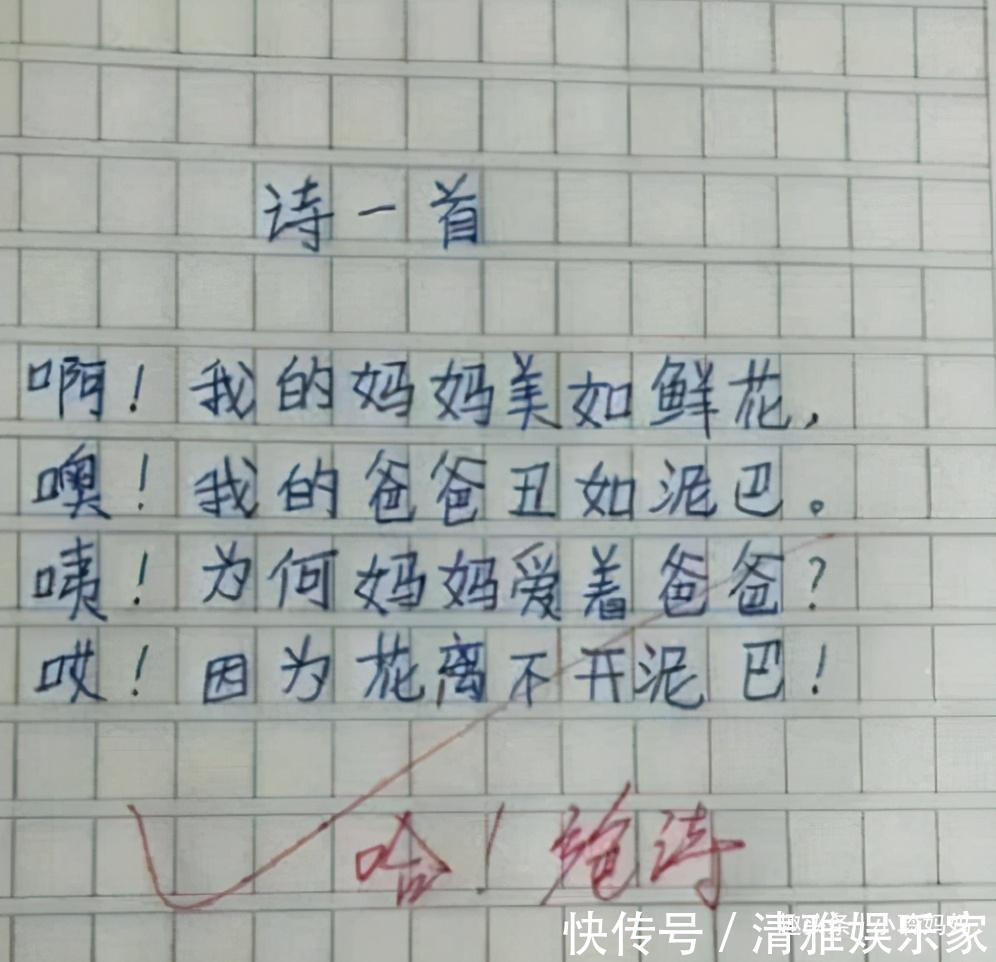 诗一首
啊！我的妈妈美如鲜花，
噢！我的爸爸丑如泥巴。
咦！为何妈妈爱着爸爸？
哎！因为花离不开泥巴！
哈！绝诗
快传号／清雅娱乐家